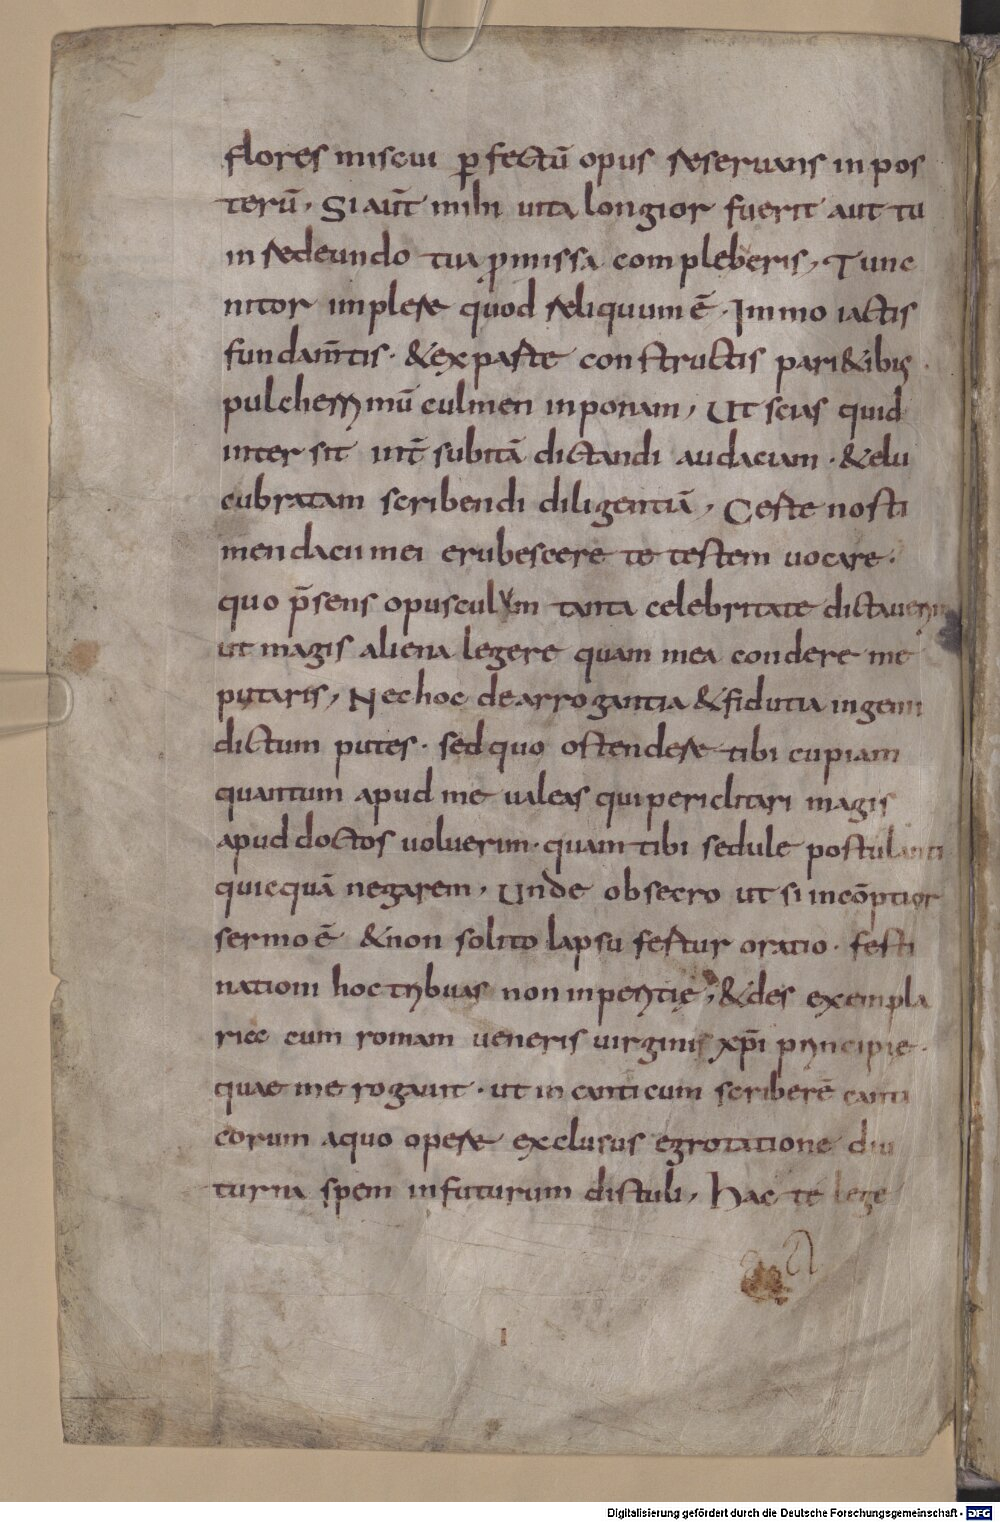 flores miscui p̱fectū opus reseruans in pos
terū, Si aut̄ mihi uita longior fuerit aut tu
in redeundo tua p̱missa compleberis, Tunc
nitor implere quod reliquum ē. Immo iactis
fundam̄tis. & ex parte constructis pari&ibus
pulcherrimū culmen inponam, Ut scias quid
inter sit int̄ subitā dictandi audaciam. & elu
cubratam scribendi diligentiā, Certe nosti
mendacii mei erubescere te testem uocare.
quo p̄sens opusculum tanta celebritate dictauerim
ut magis aliena legere quam mea condere me
putaris, Nec hoc de arrogantia & fidutia ingenii
dictum putes. sed quo ostendere tibi cupiam
quantum apud me ualeas qui periclitari magis
apud doctos uoluerim. quam tibi sedule postulanti
quicquā negarem, Unde obsecro ut si incōptior
sermo ē & non solito lapsu fertur oratio. festi
nationi hoc tribuas non inperitię, & des exempla
riec cum romam ueneris uirginis xp̄i principie.
quae me rogauit. ut in canticum scriberē canti
corum a quo opere exclusus egrotatione diu
turna spem in futurum distuli, Hac te lege
Digitalisierung gefördert durch die Deutsche Forschungsgemeinschaft - DFG